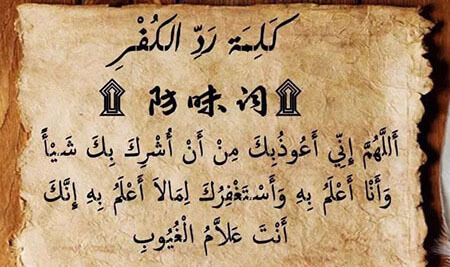 كَلِمَة رَدِّ الكُفْرِ
۩ 防昧词 ۩
أَللَّهُمَّ إِنِّي أَعُوذُبِكَ مِنْ أَنْ أُشْرِكَ بِكَ شَيْأً
وَأَنَا أَعْلَمُ بِهِ وَأَسْتَغْفِرُكَ لِمَالاَ أَعْلَمُ بِهِ إِنَّكَ
أَنْتَ عَلاَّمُ الْغُيُوبِ